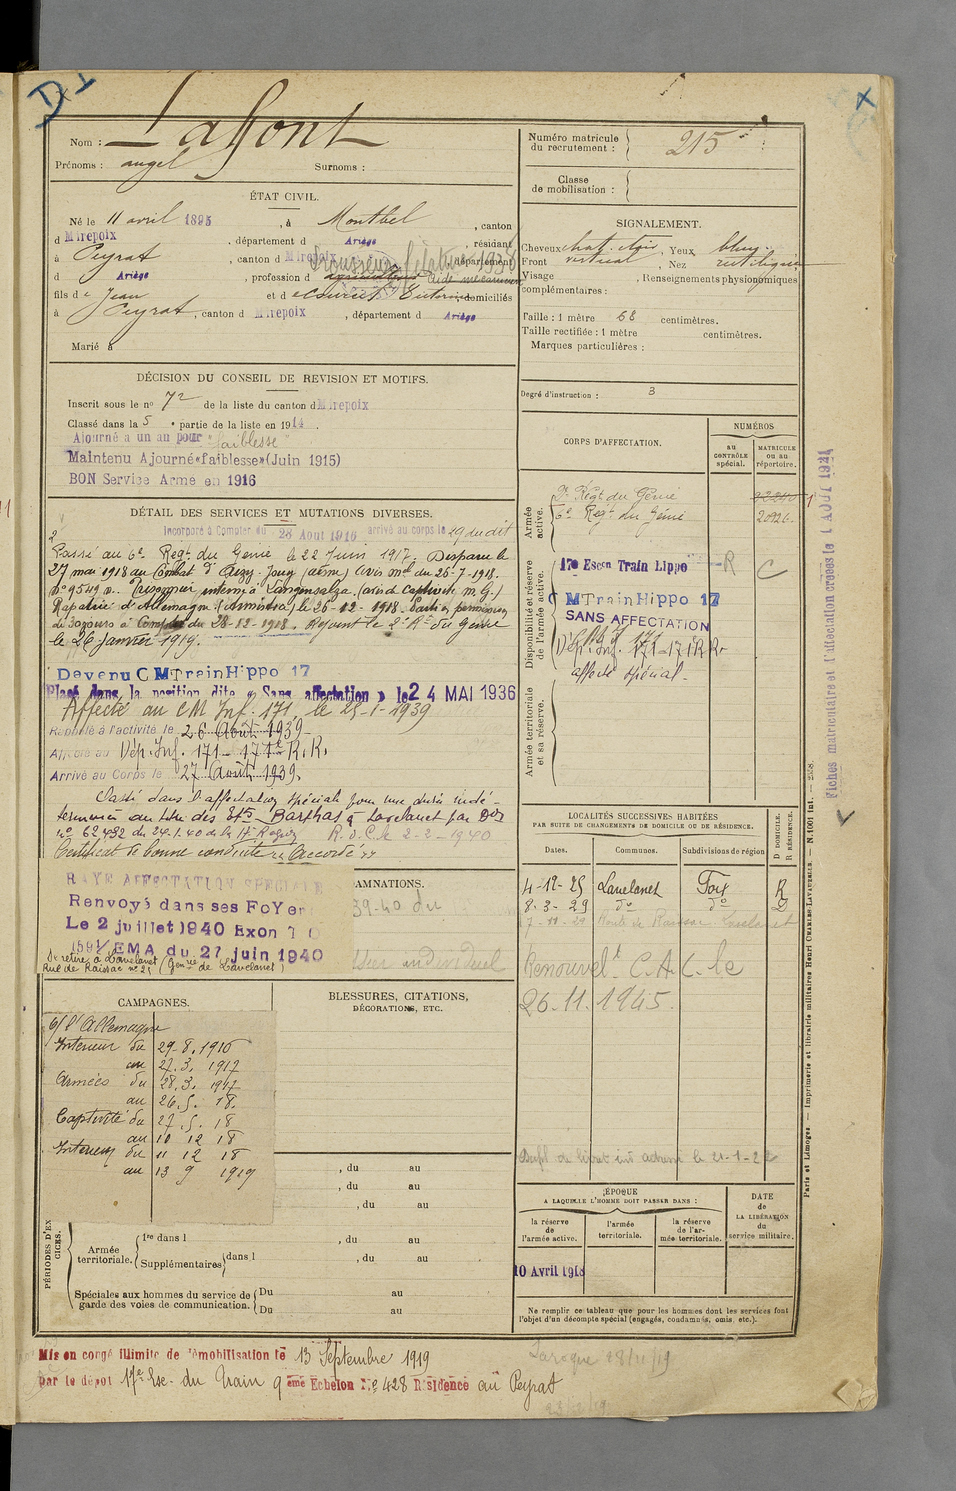 Nom : Laffont
Prénoms : angel Surnoms :
ÉTAT CIVIL.
Né le 11 avril 1895, à Montbel, canton
d Mirepoix, département d Ariège, résidant
à Peyrat, canton d Mirepoix, département
d Ariège, profession d
fils de Jean et d domiciliés
à Peyrat, canton d Mirepoix, département d Ariège
Marié à
DÉCISION DU CONSEIL DE REVISION ET MOTIFS.
Inscrit sous le no 72 de la liste du canton d Mirepoix
Classé dans la 5e partie de la liste en 1914.
Ajourné à un an pour "faiblesse"
Maintenu Ajourné «faiblesse» (Juin 1915)
BON Service Armé en 1916
DÉTAIL DES SERVICES ET MUTATIONS DIVERSES.
Incorporé à Compter du 28 Août 1916 arrivé au corps le 29 du dit
Passé au 6e Regt. du Genie le 22 Juin 1917. Disparu le
27 mai 1918 au Combat d' Jouy (aisne) avis mel du 26-7-1918.
Prisonnier interné à Langensalza. (avis de captivité M. G.)
Rapatrié d'Allemagne (Armistice) le 26-12-1918. Parti en permission
de 30 jours à Compter du 28-12-1918. Rejoint le 2e Rt du Génie
le 26 Janvier 1919.
Devenu C M Train Hippo 17
Placé dans la position dite « Sans affectation » le 24 MAI 1936
Affecté au C M Inf. 171 le 25-1-1939
Rappelé à l'activité le 26 Août 1939
Affecté au Dép. Inf. 171 - 171e R.R.
Arrivé au Corps le 27 Août 1939.
Passé dans l'affectation spéciale pour une durée indé-
terminée au titre des Ets Barthas à Lavelanet par Don
no 62492 du 24.1.40 de la 17e Région R.d.C. le 2-2-1940
Certificat de bonne conduite "Accordé"
RAYE AFFECTATION SPECIALE
Renvoyé dans ses Foyers
Le 2 juillet 1940
EMA du 27 juin 1940
Se retire à Lavelanet (Gen.rie de Lavelanet)
Rue de Raissac no 21
AMNATIONS.
39-40 du
CAMPAGNES.
c/ l'Allemagne
Interieur du 29-8.1916
au 27.3.1917
Armées du 28.3.1917
au 26.5.18.
Captivité du 27.5.18
au 10 12 18
Interieur du 11 12 18
au 13 9 1919
BLESSURES, CITATIONS,
DÉCORATIONS, ETC.
, du au
, du au
, du au
PÉRIODES D'EX
CICES.
Armée territoriale.
1re dans l , du au
Supplémentaires dans l , du au
Spéciales aux hommes du service de garde des voies de communication.
Du au
Du au
Mis en congé illimité de démobilisation le 13 Septembre 1919
par le dépôt 17e Esc. du Train 9ème Echelon No 428 Résidence au Peyrat
Numéro matricule du recrutement : 215
Classe de mobilisation :
SIGNALEMENT.
Cheveux chat. clair, Yeux bleus
Front vertical, Nez rectiligne
Visage , Renseignements physionomiques
complémentaires :
Taille : 1 mètre 68 centimètres.
Taille rectifiée : 1 mètre centimètres.
Marques particulières :
Degré d'instruction : 3
CORPS D'AFFECTATION.
NUMÉROS
au CONTRÔLE spécial.
MATRICULE ou au répertoire.
Armée active.
2e Régt du Génie
6e Regt du Génie 20926
Disponibilité et réserve de l'armée active.
17e Escon Train Hippo R C
C M Train Hippo 17
SANS AFFECTATION
C M I 171
Dép. Inf. 171 - 171e RR
affecté spécial.
Armée territoriale et sa réserve.
LOCALITÉS SUCCESSIVES HABITÉES
PAR SUITE DE CHANGEMENTS DE DOMICILE OU DE RÉSIDENCE.
Dates. Communes. Subdivisions de région D DOMICILE. R RÉSIDENCE.
4-12-25 Lavelanet Foix R
8-3-29 do do D
Route de Raissac Lavelanet
Renouvelt C.A.C. le
26.11.1945.
ÉPOQUE
A LAQUELLE L'HOMME DOIT PASSER DANS :
la réserve de l'armée active.
l'armée territoriale.
la réserve de l'armée territoriale.
DATE de LA LIBÉRATION du service militaire.
10 Avril 1918
Ne remplir ce tableau que pour les hommes dont les services font
l'objet d'un décompte spécial (engagés, condamnés, omis, etc.).
Laroque 28/11/19
Fiches matriculaire et d'affectation créées le 1 AOUT 1924
Paris et Limoges. — Imprimerie et librairie militaires Henri CHARLES-LAVAUZELLE. — N. 1001 Int. —